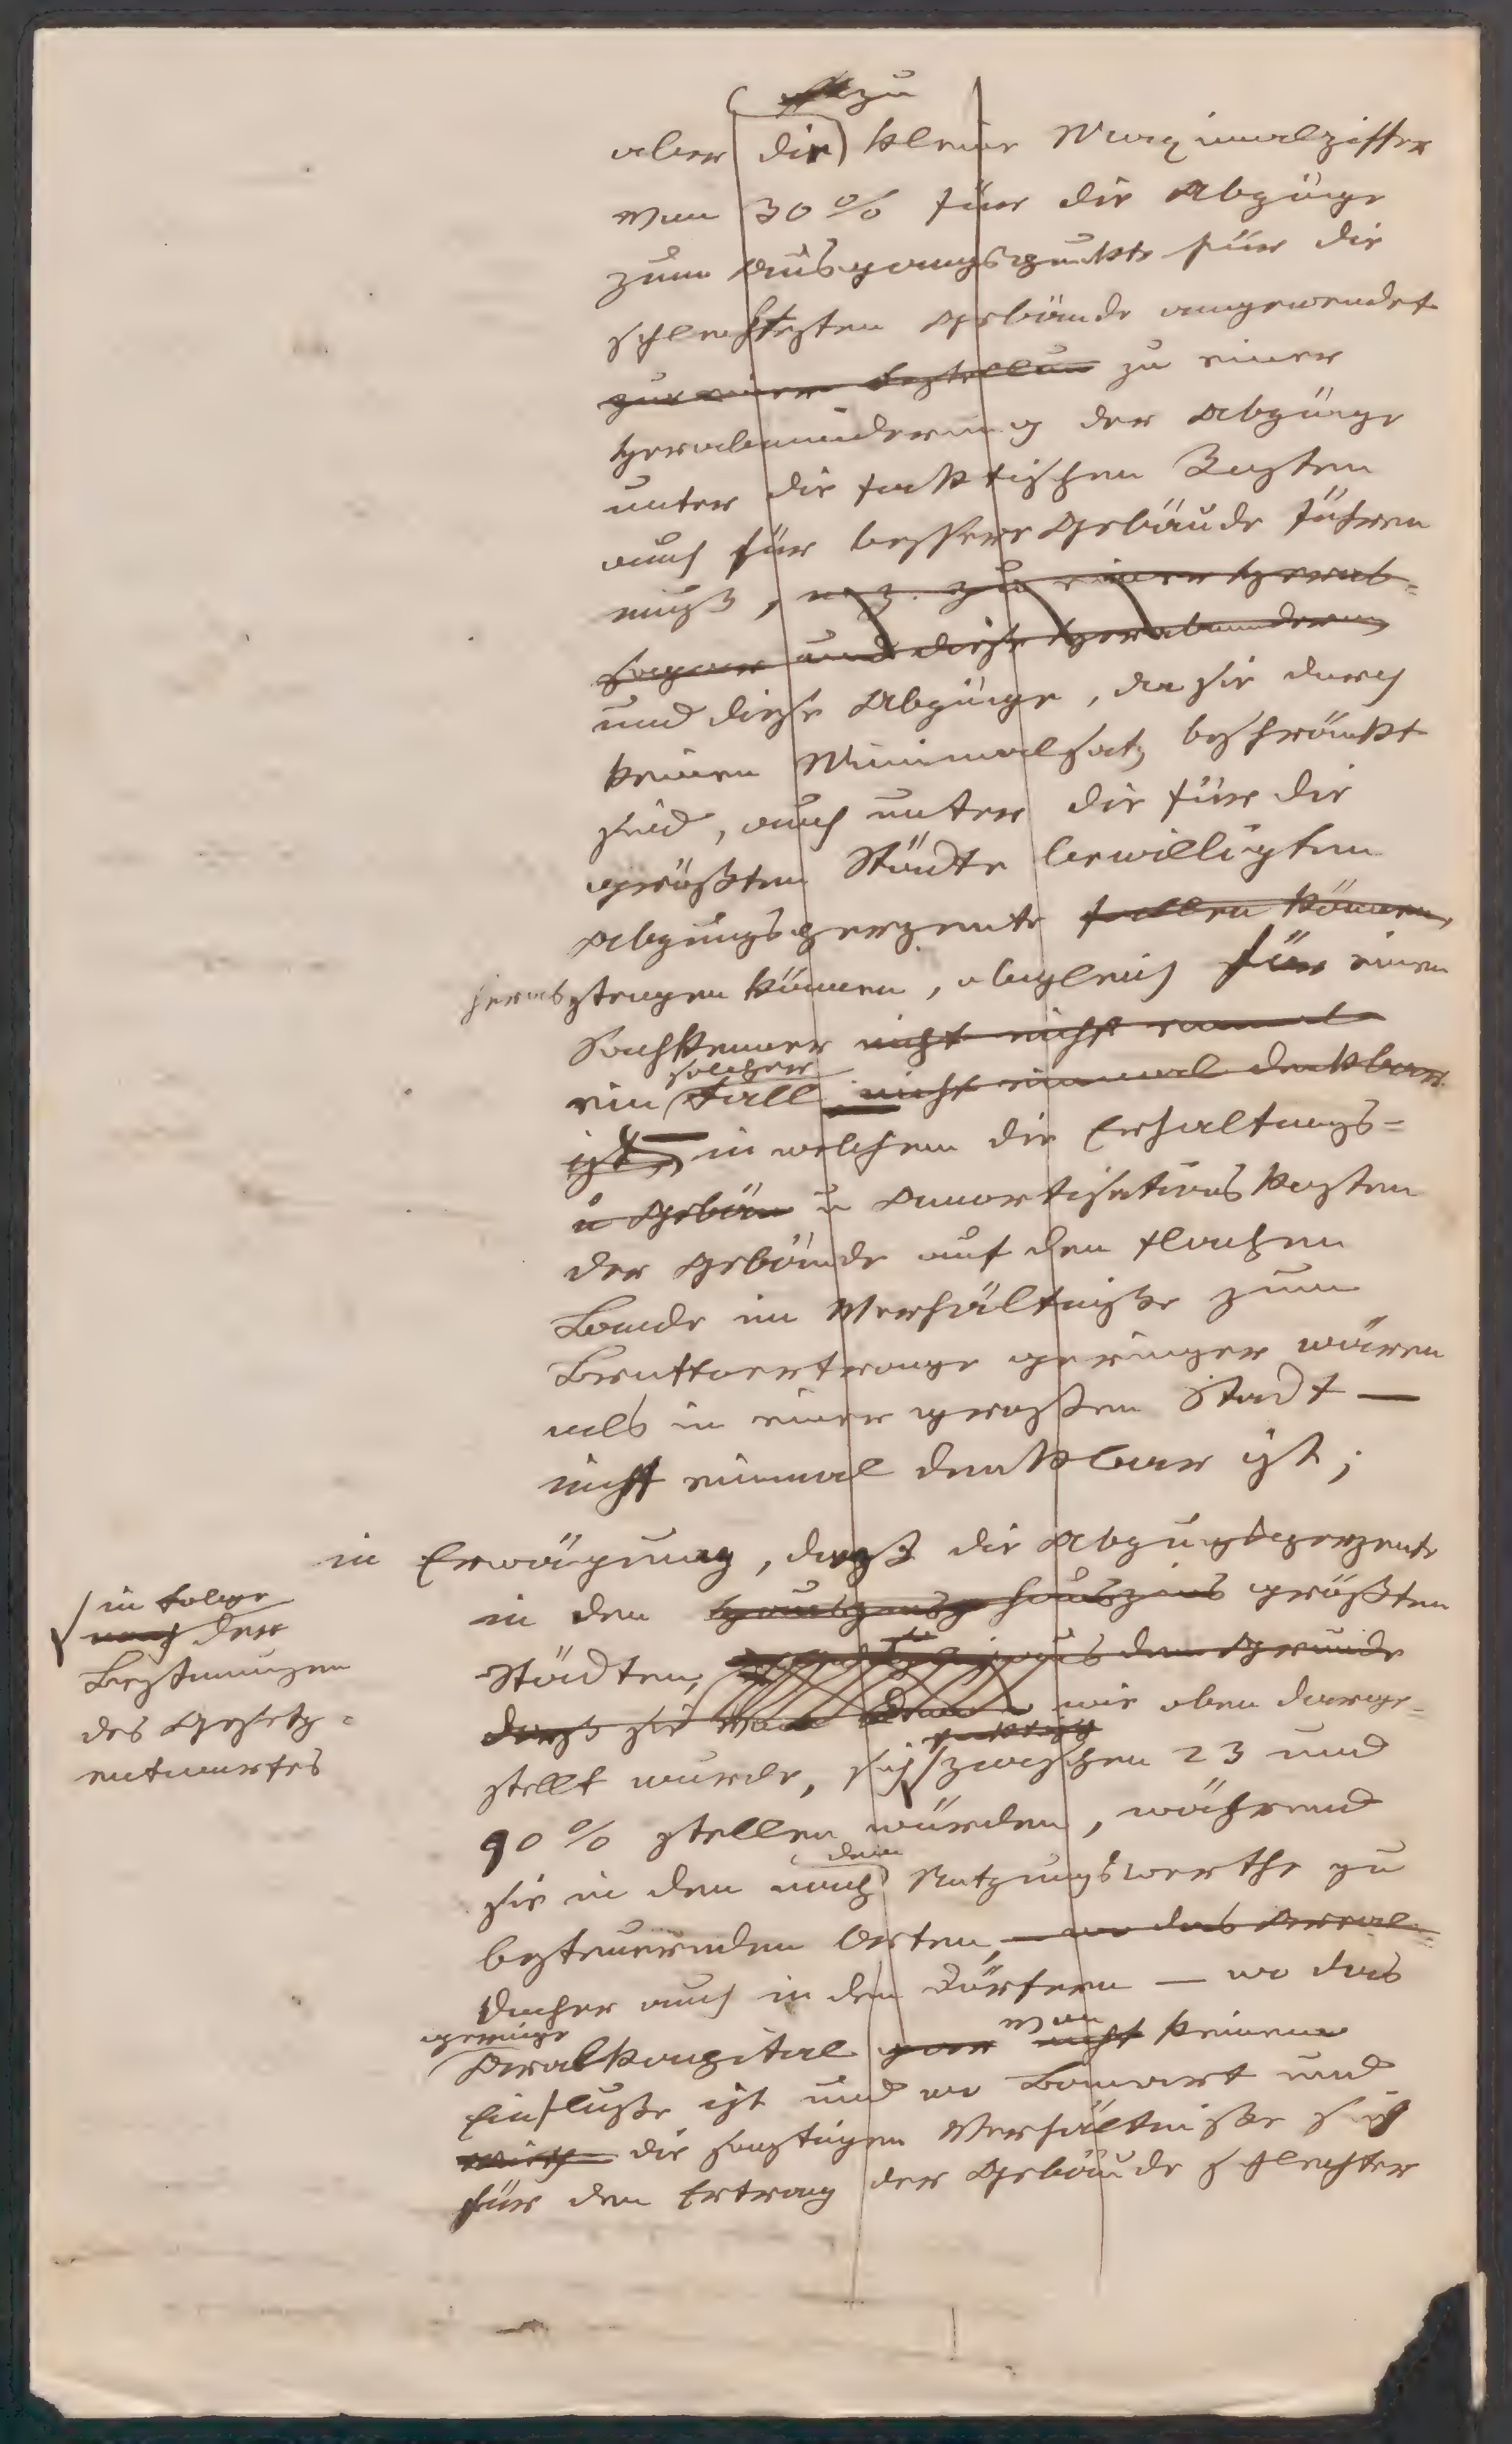 zu
aber die kleine Maximalziffer
von 30 % für die Abzüge
zum Ausgangspunkte für die
schlechtesten Gebäude angewendet
zu einer
Herabminderung der Abzüge
unter die faktischen Kosten
auch für bessere Gebäude führen
muß, zu einer Herab-
sogar und diese Herabminderung
und diese Abzüge, da sie durch
keinen Minimalsatz beschränkt
sind, auch unter die für die
größten Städte bewilligten
Abzugsperzente fallen können,
herabsteigen können, obgleich für einen
Sachkenner nicht nicht einmal
solcher
ein Fall nicht einmal denkbar
ist, in welchem die Erhaltungs-
u Gebäu u Amortisationskosten
der Gebäude auf dem flachen
Lande im Verhältniße zum
Bruttoertrage geringer wären
als in einer großen Stadt —
nicht einmal denkbar ist;
in Erwägung, daß die Abzugsperzente
in den hauszins größten
Städten, aus dem Grunde
daß sie wie oben darge-
faktisch
stellt wurde, sich zwischen 23 und
90 % stellen würden, während
dem
sie in den nach Nutzungswerthe zu
besteuernden Orten, — wo das Areal-
Daher auch in den Dörfern — wo das
geringe von
Arealkapital gar nicht keinem
Einfluße ist und wo Bauart und
die sonstigen Verhältniße sich
für den Ertrag der Gebäude schlechter
in Folge
nach der
Bestimungen
des Gesetz-
entwurfes